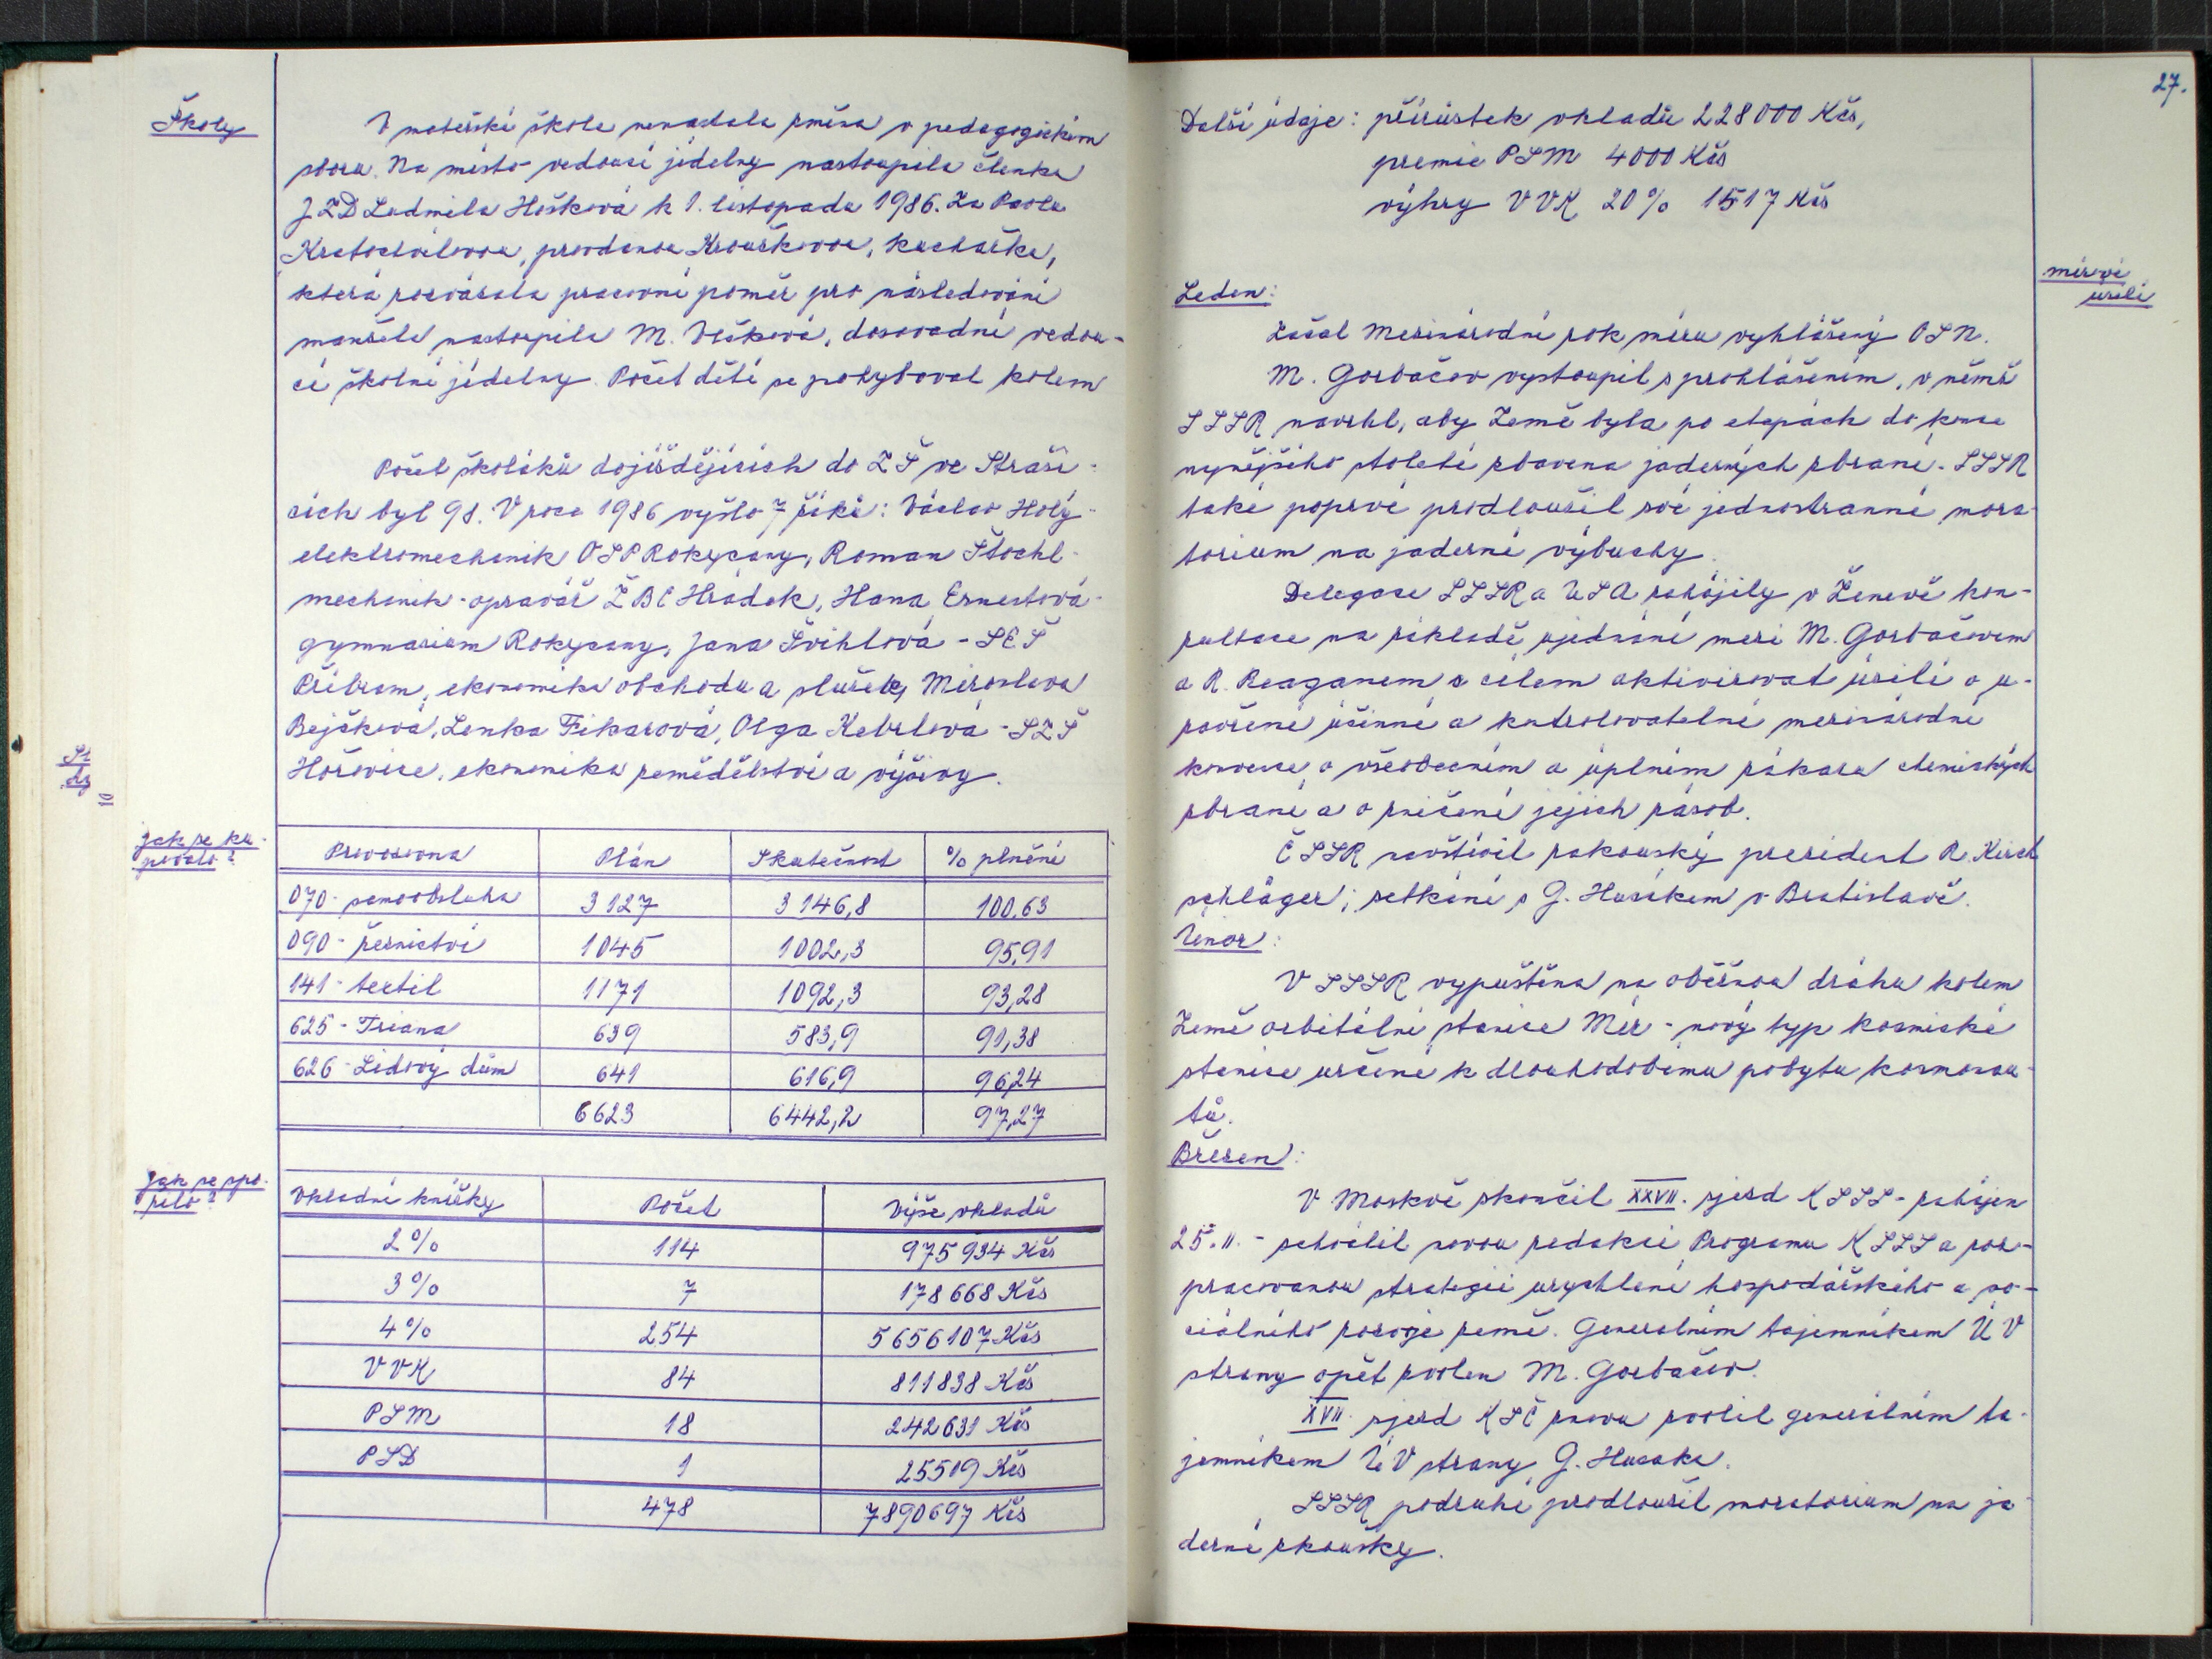 Školy
V mateřské škole nenastala změna v pedagogickém
sboru. Na místo vedoucí jídelny nastoupila členka
JZD Ludmila Hošková k 1. listopadu 1986. Za Pavlu
Kratochvílovou, provdanou Krouškovou, kuchařku,
která rozvázala pracovní poměr pro následování
manžela nastoupila M. Vlčková, dosavadní vedou-
cí školní jídelny. Počet dětí se pohyboval kolem
Počet školáků dojíždějících do ZŠ ve Straši-
cích byl 98. V roce 1986 vyšlo 7 žáků: Václav Holý-
elektromechanik OSP Rokycany, Roman Štochl-
mechanik-opravář ŽBC Hrádek, Hana Ernestová-
gymnasium Rokycany, Jana Švihlová - SEŠ
Příbram, ekonomika obchodu a služeb, Miroslava
Bejčková, Lenka Fikarová, Olga Kebrlová - SZŠ
Hořovice, ekonomika zemědělství a výživy.
jak se ku-
povalo?
Provozovna Plán Skutečnost % plnění
070 - samoobsluha 3127 3146,8 100,63
090 - řeznictví 1045 1002,3 95,91
141 - textil 1171 1092,3 93,28
625 - Triana 639 583,9 91,38
626 - Lidový dům 641 616,9 96,24
6623 6442,2 97,27
jak se spo-
řilo?
Vkladní knížky Počet Výše vkladů
2% 114 975934 Kčs
3% 7 178668 Kčs
4% 254 5656107 Kčs
VVK 84 811838 Kčs
PSM 18 242631 Kčs
PSD 1 25519 Kčs
478 7890697 Kčs
27.
Další údaje: přírůstek vkladů 228000 Kčs,
premie PSM 4000 Kčs
výhry VVK 20% 1517 Kčs
mírové
úsilí
Leden:
Začal Mezinárodní rok míru vyhlášený OSN.
M. Gorbačov vystoupil s prohlášením, v němž
SSSR navrhl, aby Země byla po etapách do konce
nynějšího století zbavena jaderných zbraní. SSSR
také poprvé prodloužil své jednostranné mora-
torium na jaderné výbuchy.
Delegace SSSR a USA zahájily v Ženevě kon-
zultace na základě ujednání mezi M. Gorbačovem
a R. Reaganem s cílem aktivizovat úsilí o u-
zavření účinné a kontrolovatelné mezinárodní
konvence o všeobecném a úplném zákazu chemických
zbraní a o zničení jejich zásob.
ČSSR navštívil rakouský prezident R. Kirch-
schläger; setkání s G. Husákem v Bratislavě.
Únor:
V SSSR vypuštěna na oběžnou dráhu kolem
Země orbitální stanice Mír - nový typ kosmické
stanice určené k dlouhodobému pobytu kosmonau-
tů.
Březen:
V Moskvě skončil XXVII. sjezd KSSS - zahájen
25. II. - schválil novou redakci Programu KSSS a roz-
pracovanou strategii urychlení hospodářského a so-
ciálního rozvoje země. Generálním tajemníkem ÚV
strany opět zvolen M. Gorbačov.
XVII. sjezd KSČ znovu zvolil generálním ta-
jemníkem ÚV strany G. Husáka.
SSSR podruhé prodloužil moratorium na ja-
derné zkoušky.